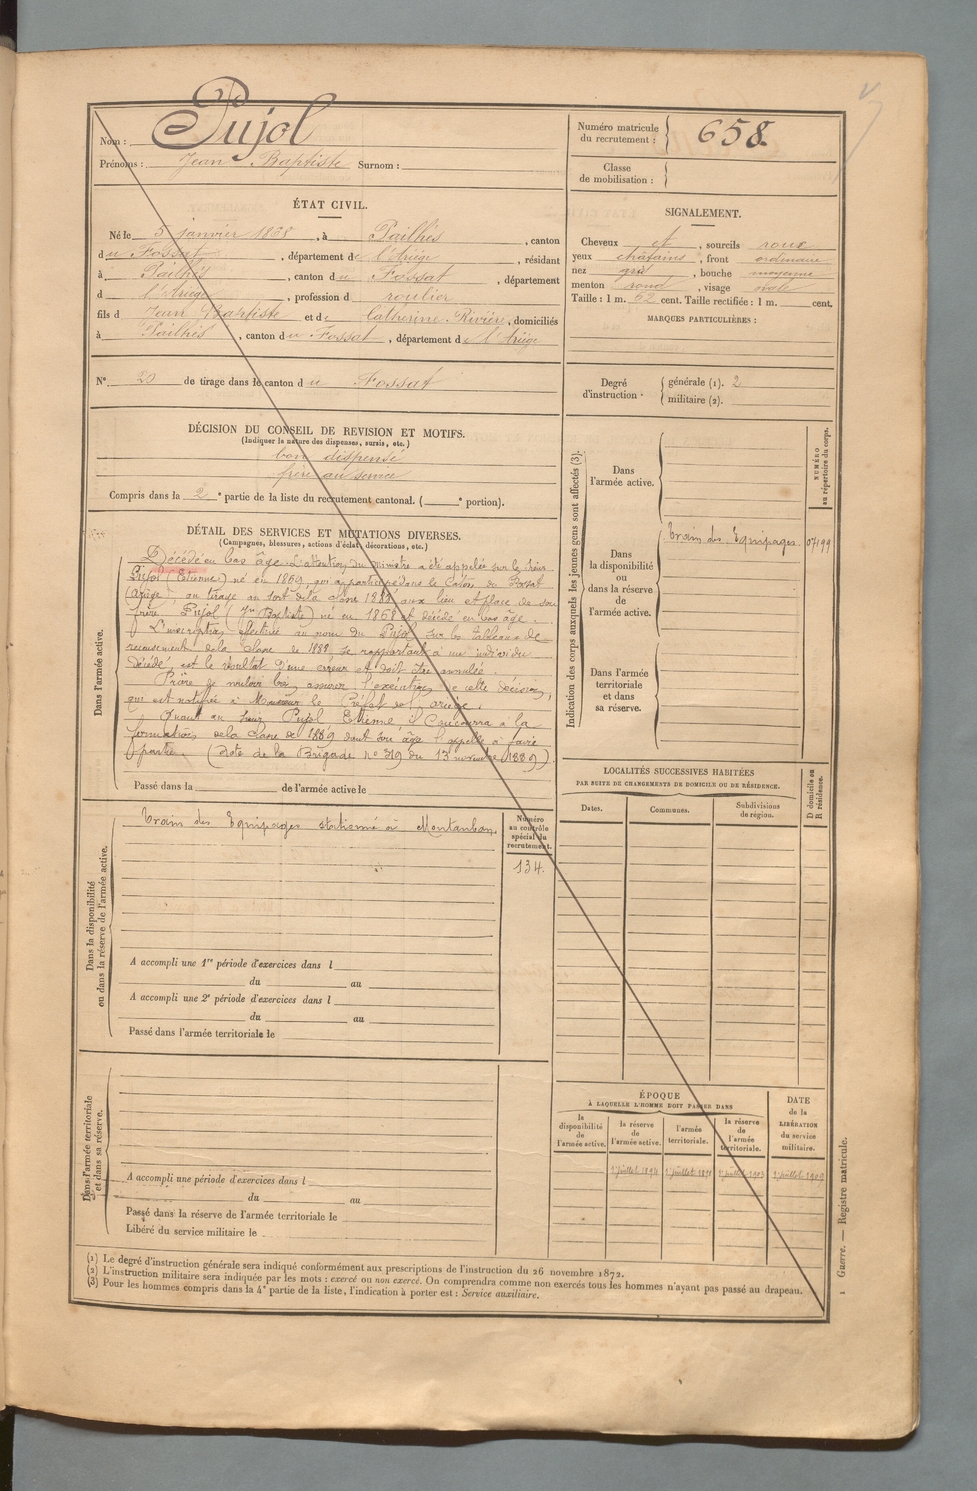 Nom : Pujol
Prénoms : Jean Baptiste Surnom :
Numéro matricule du recrutement : 658.
Classe de mobilisation :
ÉTAT CIVIL.
Né le 5 janvier 1868, à Pailhés, canton
du Fossat, département de l'Ariège, résidant
à Pailhés, canton du Fossat, département
d l'Ariège, profession d roulier
fils d Jean Baptiste et de Catherine Rivière, domiciliés
à Pailhés, canton du Fossat, département de l'Ariège
N° 20 de tirage dans le canton du Fossat
SIGNALEMENT.
Cheveux et, sourcils roux
yeux chatains, front ordinaire
nez gros, bouche moyenne
menton rond, visage ovale
Taille : 1 m. 62 cent. Taille rectifiée : 1 m. cent.
MARQUES PARTICULIÈRES :
Degré d'instruction : générale (1). 2
militaire (2).
DÉCISION DU CONSEIL DE REVISION ET MOTIFS.
(Indiquer la nature des dispenses, sursis, etc.)
bon dispensé
frère au service
Compris dans la 2e partie de la liste du recrutement cantonal. ( e portion).
DÉTAIL DES SERVICES ET MUTATIONS DIVERSES.
(Campagnes, blessures, actions d'éclat, décorations, etc.)
Dans l'armée active.
Décédé en bas âge. L'attention du ministre a été appelée sur le sieur
Pujol (Etienne) né en 1869, qui a participé dans le Canton du Fossat
(Ariège) au tirage au sort de la classe 1888 aux lieu et place de son
frère Pujol (Jn Baptiste) né en 1868 et décédé en bas âge.
L'inscription effectuée au nom du Pujol sur les tableaux de
recensement de la classe de 1888 se rapportant à un individu
décédé, est le résultat d'une erreur et doit être annulée.
Prière de vouloir bien assurer l'exécution de cette décision,
qui est notifiée à Monsieur le Préfet de l'Ariège.
Quant au sieur Pujol Etienne il concourra à la
formation de la classe de 1889 dont son âge l'appelle à faire
partie. (Note de la Brigade no 319 du 13 novembre 1889).
Passé dans la de l'armée active le
Dans la disponibilité ou dans la réserve de l'armée active.
Train des Equipages stationné à Montauban
Numéro au contrôle spécial du recrutement.
134.
A accompli une 1re période d'exercices dans l
du au
A accompli une 2e période d'exercices dans l
du au
Passé dans l'armée territoriale le
Dans l'armée territoriale et dans sa réserve.
A accompli une période d'exercices dans l
du au
Passé dans la réserve de l'armée territoriale le
Libéré du service militaire le
Indication des corps auxquels les jeunes gens sont affectés (3).
NUMÉRO au répertoire du corps.
Dans l'armée active.
Dans la disponibilité ou dans la réserve de l'armée active.
Train des Equipages.
Dans l'armée territoriale et dans sa réserve.
LOCALITÉS SUCCESSIVES HABITÉES
PAR SUITE DE CHANGEMENTS DE DOMICILE OU DE RÉSIDENCE.
D domicile ou R résidence.
Dates. Communes. Subdivisions de région.
ÉPOQUE
À LAQUELLE L'HOMME DOIT PASSER DANS
la disponibilité de l'armée active.
la réserve de l'armée active.
l'armée territoriale.
la réserve de l'armée territoriale.
DATE de la LIBÉRATION du service militaire.
1er juillet 1909
(1) Le degré d'instruction générale sera indiqué conformément aux prescriptions de l'instruction du 26 novembre 1872.
(2) L'instruction militaire sera indiquée par les mots : exercé ou non exercé. On comprendra comme non exercés tous les hommes n'ayant pas passé au drapeau.
(3) Pour les hommes compris dans la 4e partie de la liste, l'indication à porter est : Service auxiliaire.
Guerre. — Registre matricule.